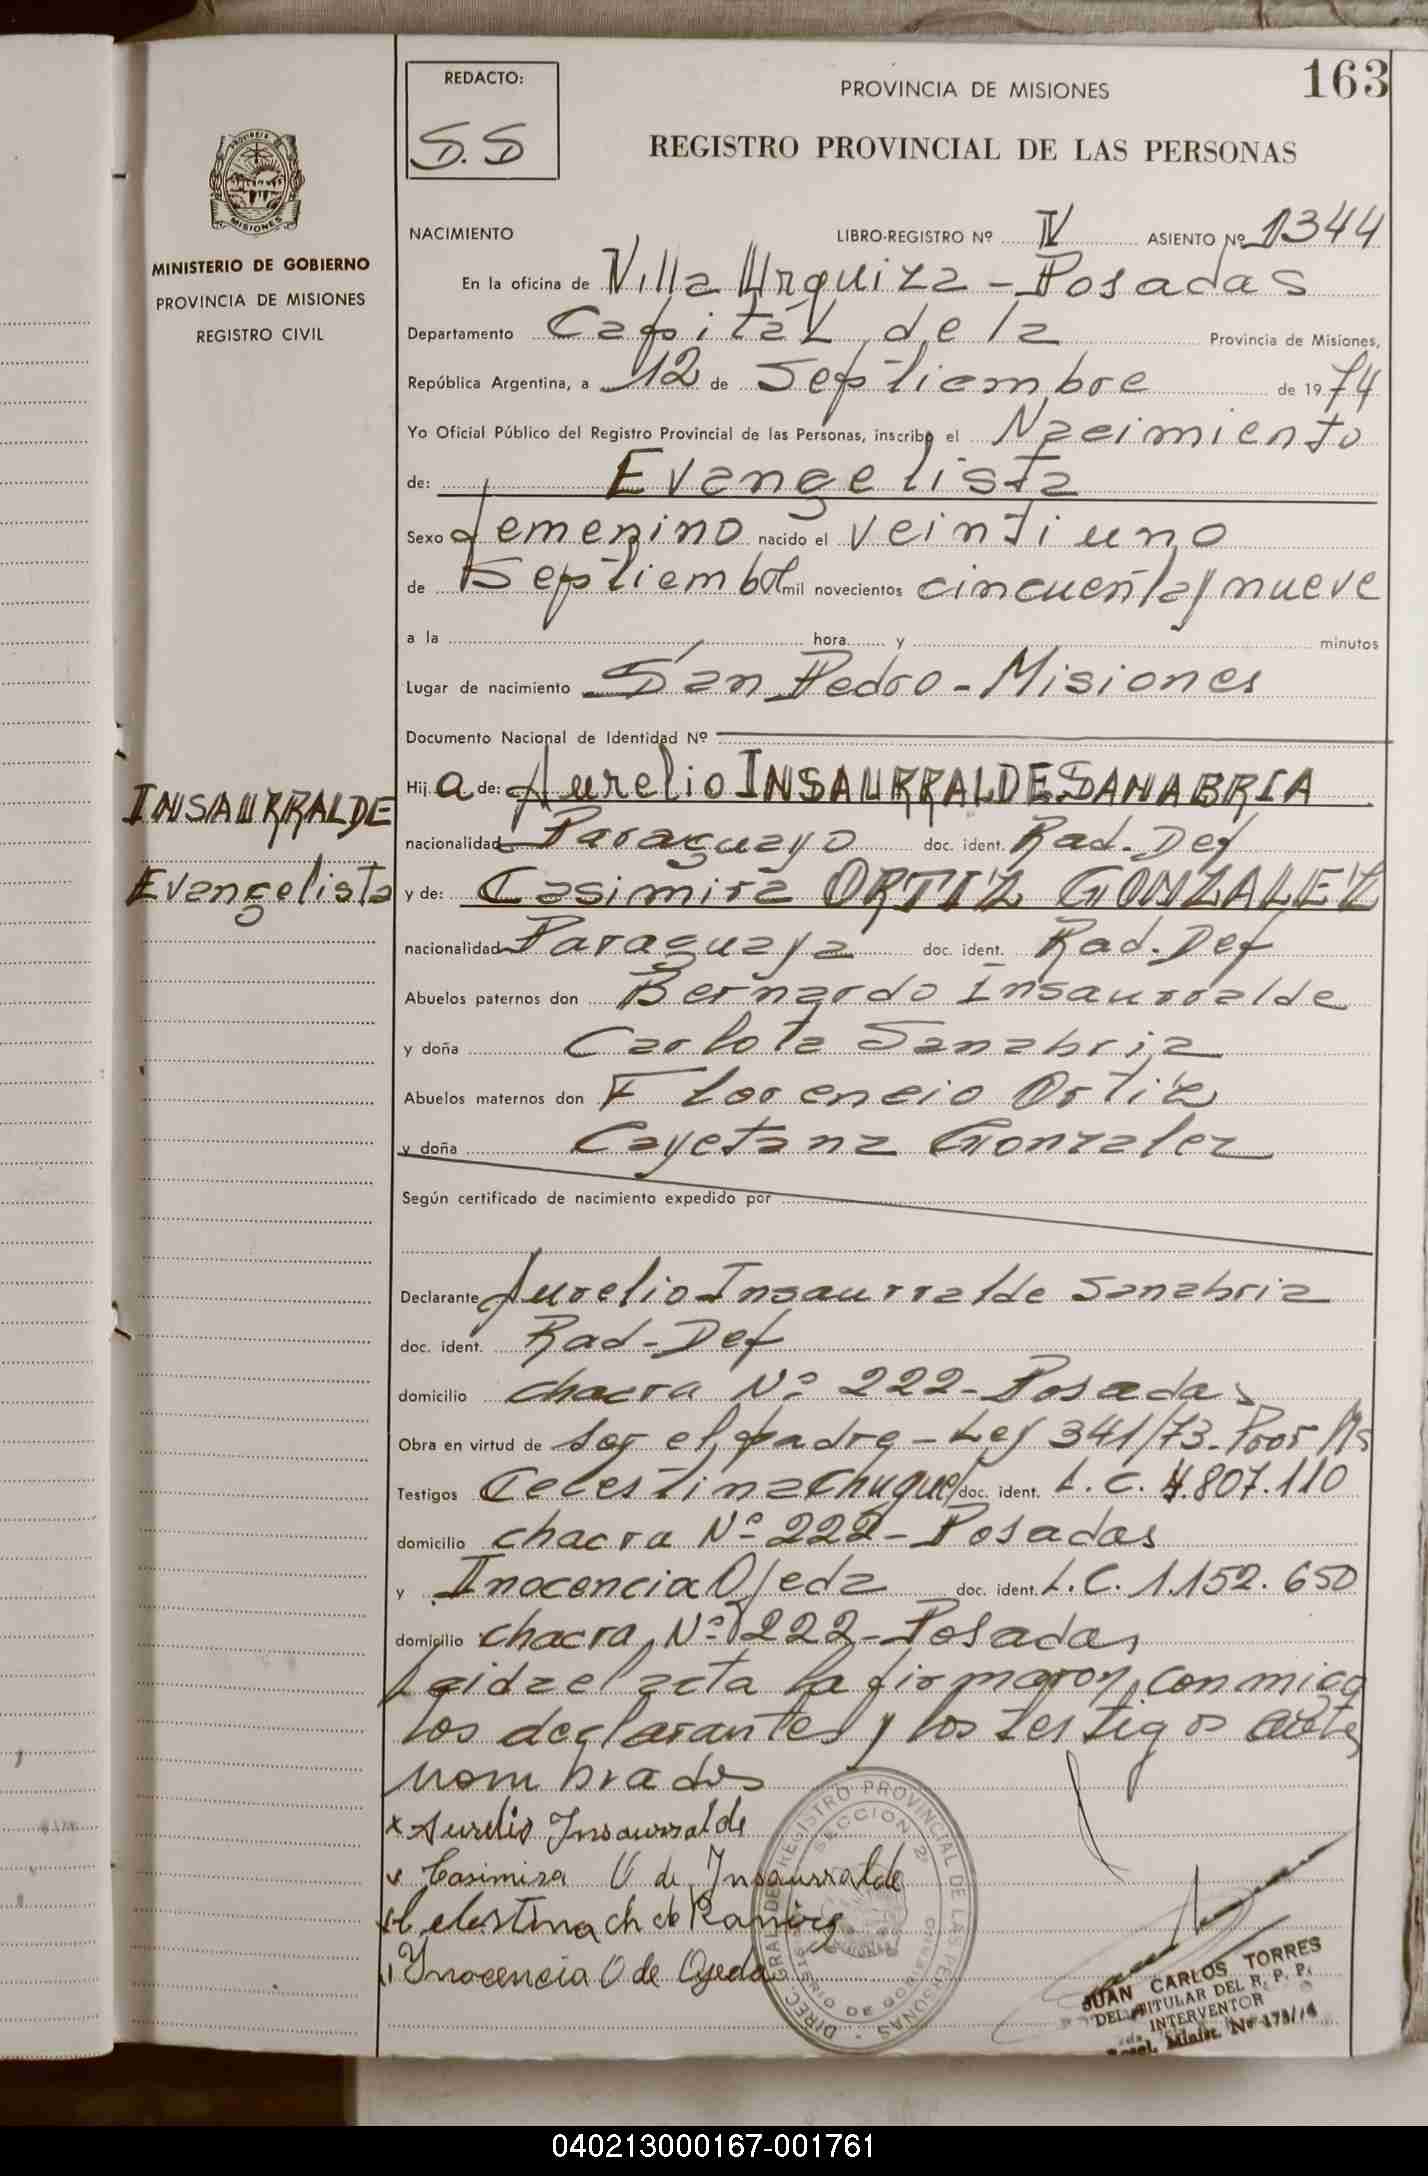 163
REDACTO:
S.S
PROVINCIA DE MISIONES
REGISTRO PROVINCIAL DE LAS PERSONAS
MISIONES
MINISTERIO DE GOBIERNO
PROVINCIA DE MISIONES
REGISTRO CIVIL
NACIMIENTO LIBRO-REGISTRO Nº IV ASIENTO Nº 1344
En la oficina de Villa Urquiza - Posadas
Departamento Capital de la Provincia de Misiones,
República Argentina, a 12 de Septiembre de 1974
Yo Oficial Público del Registro Provincial de las Personas, inscribo el Nacimiento
de: Evangelista
Sexo femenino nacido el veintiuno
de Septiembre mil novecientos cincuenta y nueve
a la hora y minutos
Lugar de nacimiento San Pedro - Misiones
Documento Nacional de Identidad Nº
INSAURRALDE
Evangelista
Hija de: Aurelio INSAURRALDE SANABRIA
nacionalidad Paraguayo doc. ident. Rad. Def
y de: Casimira ORTIZ GONZALEZ
nacionalidad Paraguaya doc. ident. Rad. Def
Abuelos paternos don Bernardo Insaurralde
y doña Carlota Sanabria
Abuelos maternos don Florencio Ortiz
y doña Cayetana Gonzalez
Según certificado de nacimiento expedido por
Declarante Aurelio Insaurralde Sanabria
doc. ident. Rad-Def
domicilio chacra Nº 222 - Posadas
Obra en virtud de ser el padre - Ley 341/73 -
Testigos Celestina doc. ident. L.C. 4.807.110
domicilio chacra Nº 222 - Posadas
y Inocencia Ojeda doc. ident. L.C. 1.152.650
domicilio chacra Nº 222 - Posadas
Leida el acta la firmaron conmigo
los declarantes y los testigos
nombrados
x Aurelio Insaurralde
Casimira O de Insaurralde
Celestina ch de Ramirez
Inocencia O de Ojeda
DIREC. GRAL. DEL REGISTRO PROVINCIAL DE LAS PERSONAS
SECCION 2
MINISTERIO DE GOBIERNO
JUAN CARLOS TORRES
DEL. TITULAR DEL R. P. P.
INTERVENTOR
Resol. Minist. No 173/74
040213000167-001761